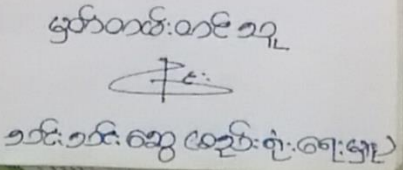 မှတ်တမ်းတင်သူ
သင်းသင်းဆွေ (စည်းရုံးရေးမှူး)